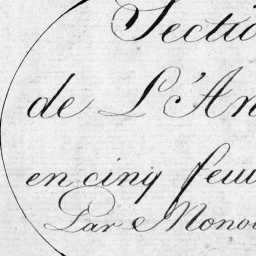 Sectio
de L'An
en cinq feui
Par Mono